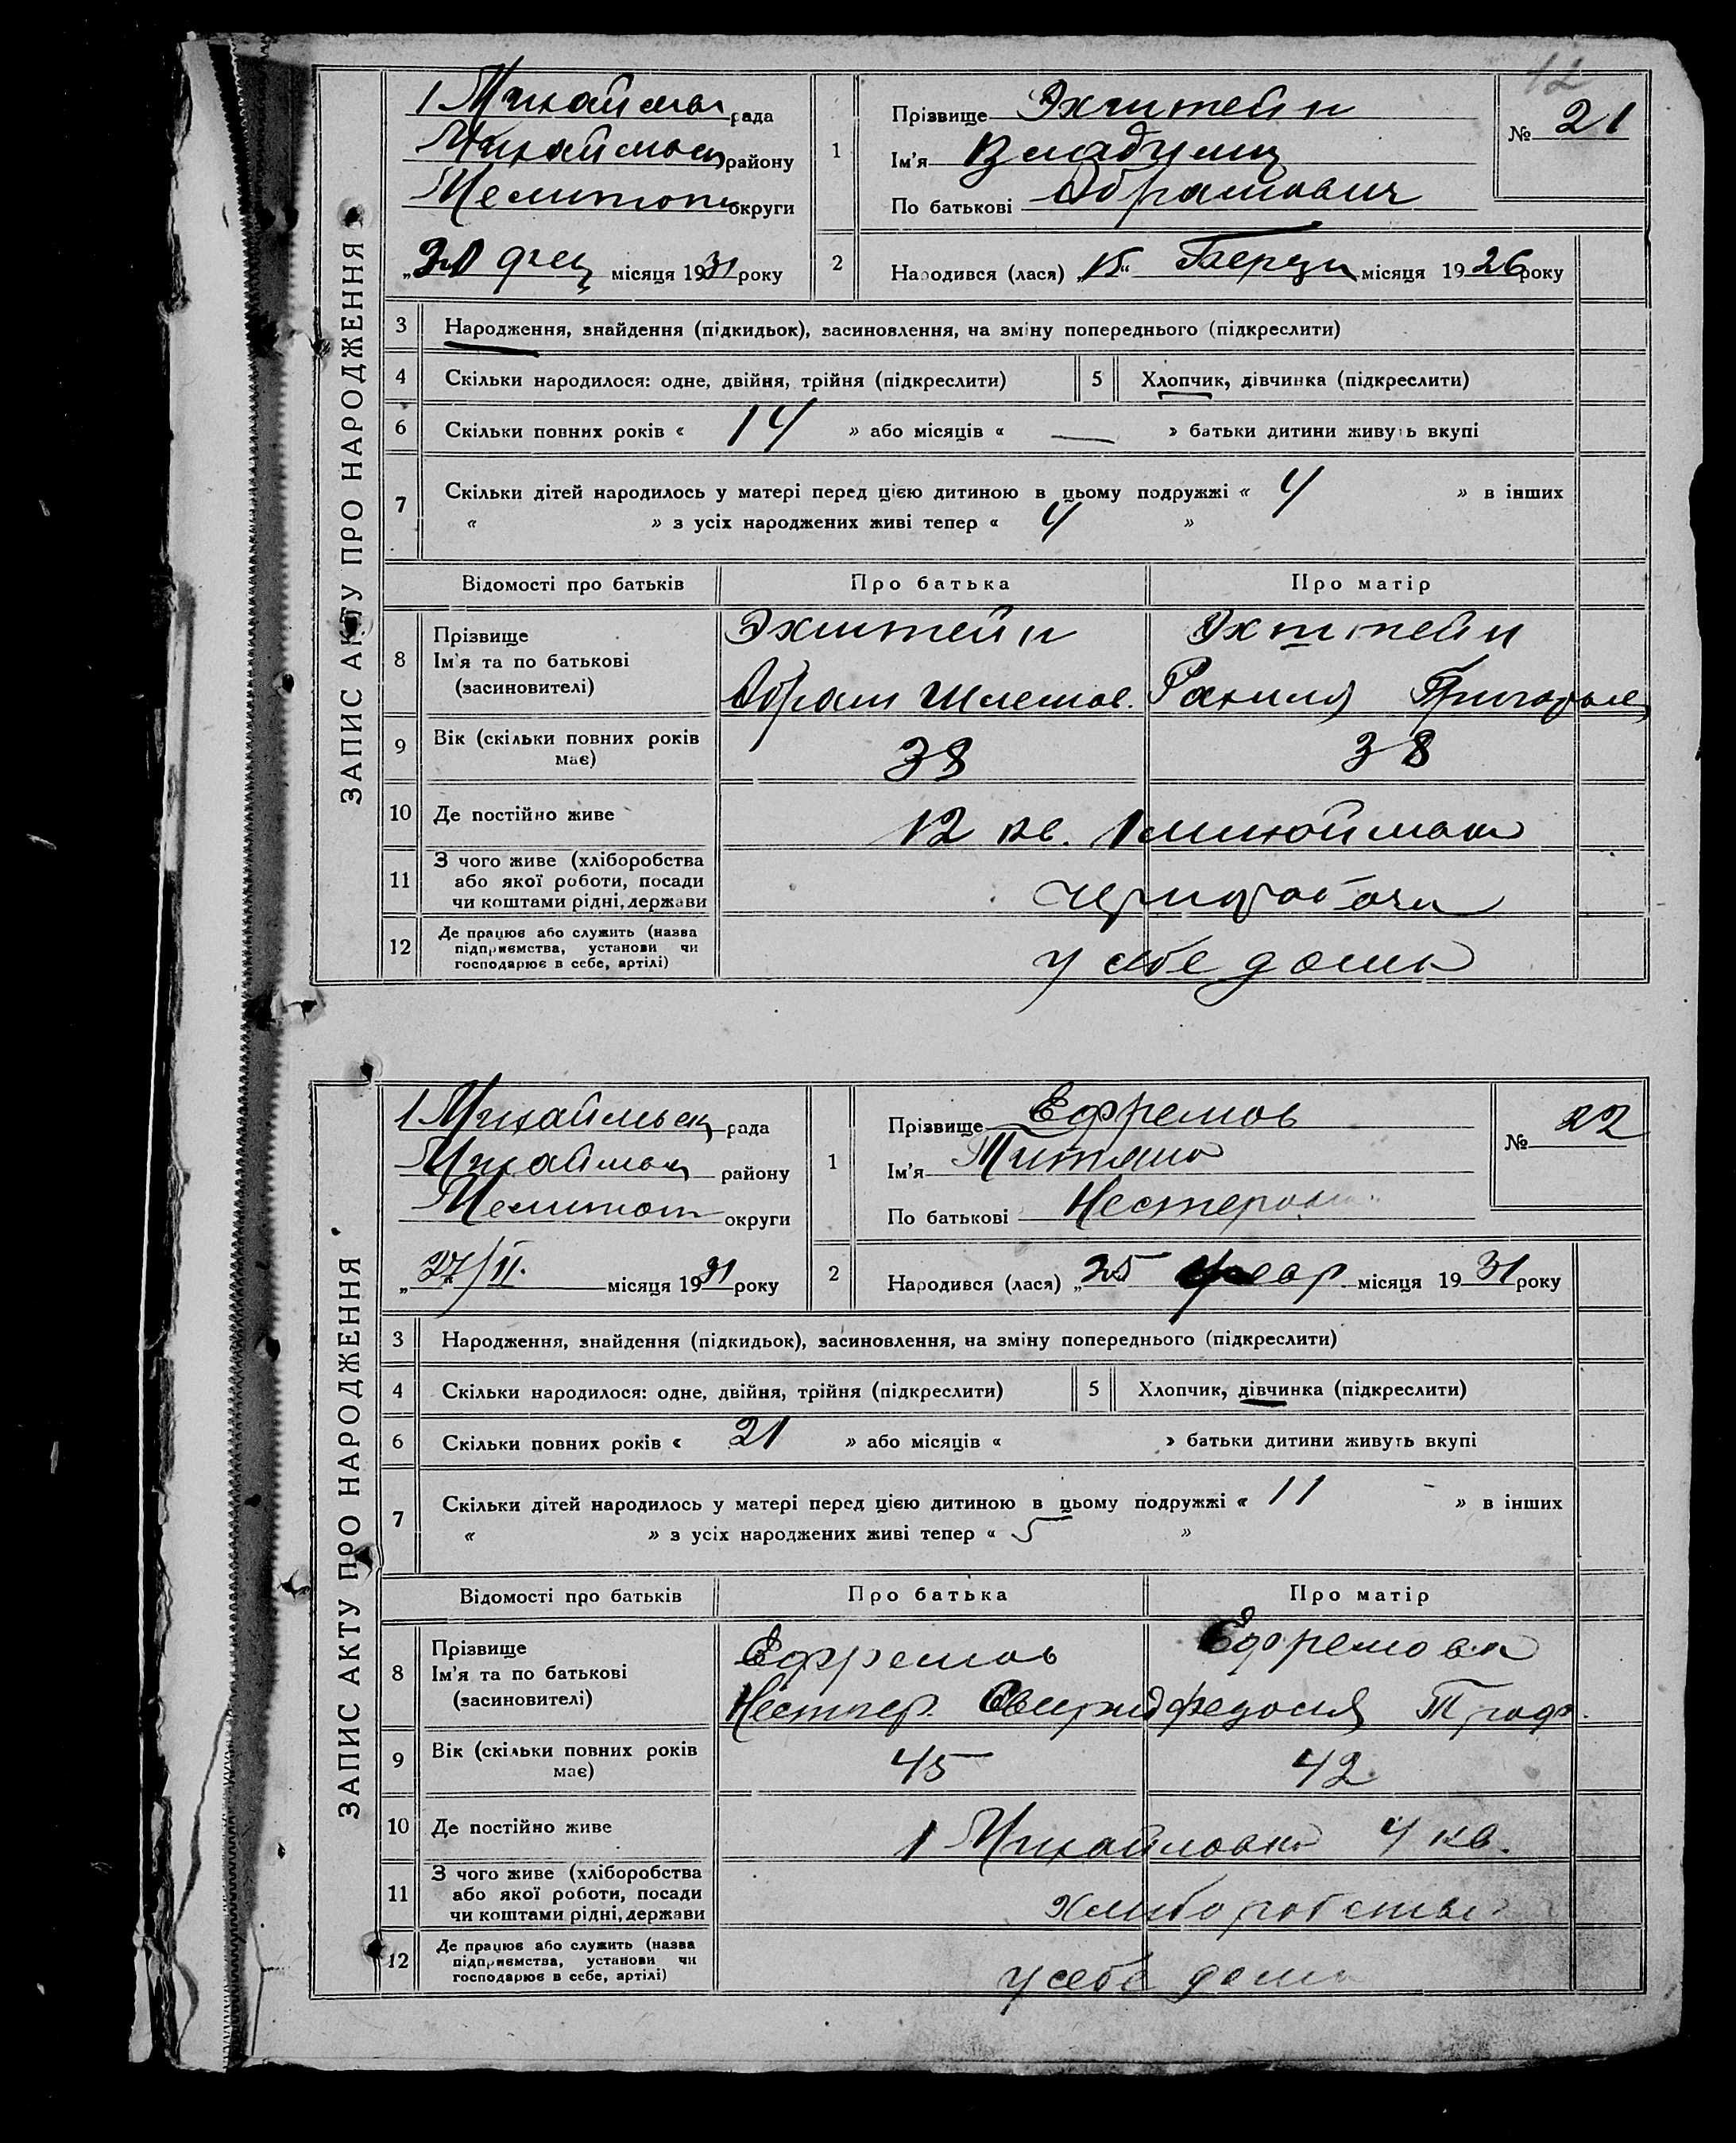 12
ЗАПИС АКТУ ПРО НАРОДЖЕННЯ
1 Михайл рада
Михайльск району
Мелитоп округи
"20 місяця 1931 року
1 Прізвище Эхштейн
Ім'я
По батькові Абрамович
№ 21
2 Народився (лася) „15" місяця 1926 року
3 Народження, знайдення (підкидьок), засиновлення, на зміну попереднього (підкреслити)
4 Скільки народилося: одне, двійня, трійня (підкреслити) 5 Хлопчик, дівчинка (підкреслити)
6 Скільки повних років « 14 » або місяців « — » батьки дитини живуть вкупі
7 Скільки дітей народилось у матері перед цією дитиною в цьому подружжі « 4 » в інших
« » з усіх народжених живі тепер « 4 »
Відомості про батьків Про батька Про матір
8 Прізвище Эхштейн Эхштейн
Ім'я та по батькові
(засиновителі) Абрам Шлемов. Рахиля Григорьев
9 Вік (скільки повних років
має) 38 38
10 Де постійно живе 12 кв. 1
11 З чого живе (хліборобства
або якої роботи, посади
чи коштами рідні, держави
12 Де працює або служить (назва
підприємства, установи чи
господарює в себе, артілі) у себе дома
ЗАПИС АКТУ ПРО НАРОДЖЕННЯ
1 Михайльск рада
Михайльск району
Мелитоп округи
„27/II. місяця 1931 року
1 Прізвище Ефремов
Ім'я Титяна
По батькові Нестеровна
№ 22
2 Народився (лася) „25 февр. місяця 1931 року
3 Народження, знайдення (підкидьок), засиновлення, на зміну попереднього (підкреслити)
4 Скільки народилося: одне, двійня, трійня (підкреслити) 5 Хлопчик, дівчинка (підкреслити)
6 Скільки повних років « 21 » або місяців « » батьки дитини живуть вкупі
7 Скільки дітей народилось у матері перед цією дитиною в цьому подружжі « 11 » в інших
« » з усіх народжених живі тепер « 5 »
Відомості про батьків Про батька Про матір
8 Прізвище Ефремов Ефремова
Ім'я та по батькові
(засиновителі) Нестер. Свирид Федосия Троф.
9 Вік (скільки повних років
має) 45 42
10 Де постійно живе 1 Михайловка 4 кв.
11 З чого живе (хліборобства
або якої роботи, посади
чи коштами рідні, держави
12 Де працює або служить (назва
підприємства, установи чи
господарює в себе, артілі) у себе дома